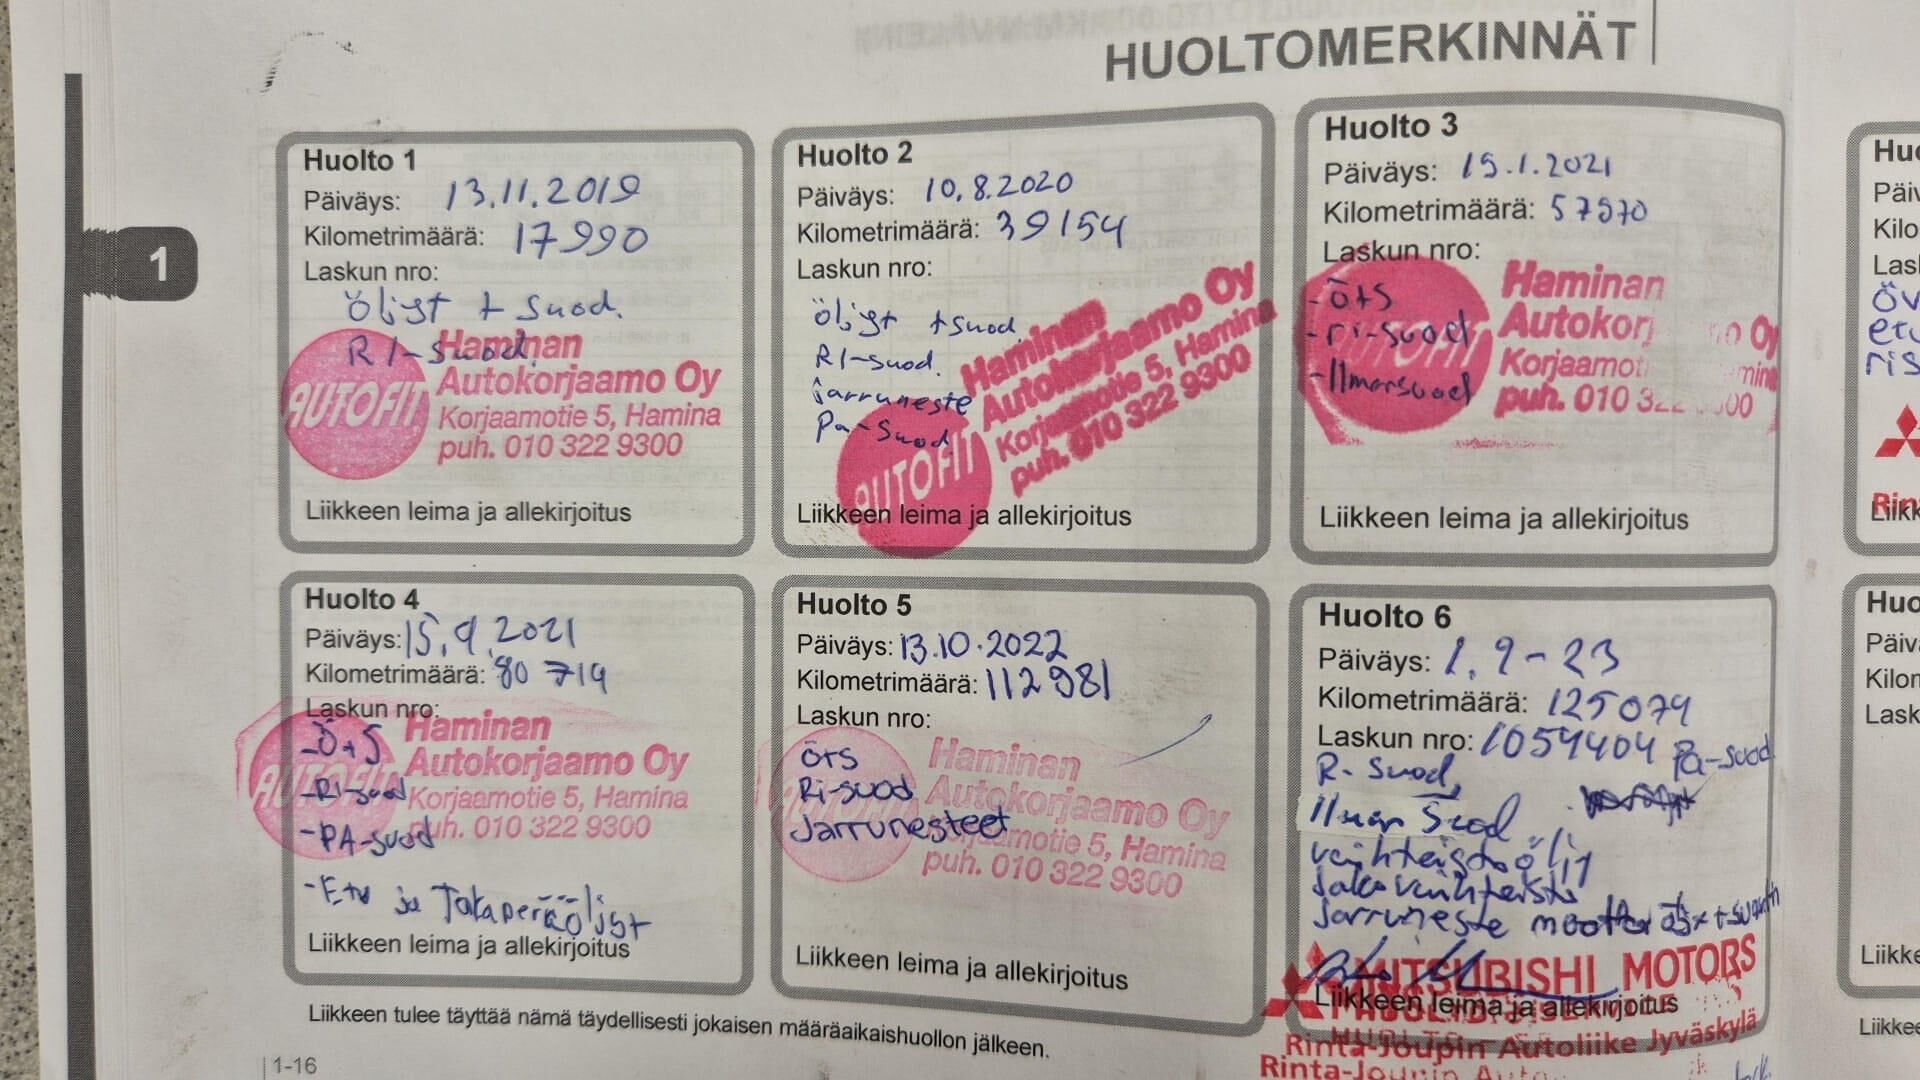 HUOLTOMERKINNÄT
1
Huolto 1
Päiväys: 13.11.2019
Kilometrimäärä: 17990
Laskun nro:
öljyt + suod.
RI-suod.
AUTOFIT
Haminan
Autokorjaamo Oy
Korjaamotie 5, Hamina
puh. 010 322 9300
Liikkeen leima ja allekirjoitus
Huolto 2
Päiväys: 10.8.2020
Kilometrimäärä: 39154
Laskun nro:
öljyt + suod
RI-suod.
jarruneste
Pa-Suod
AUTOFIT
Haminan
Autokorjaamo Oy
Korjaamotie 5, Hamina
puh. 010 322 9300
Liikkeen leima ja allekirjoitus
Huolto 3
Päiväys: 15.1.2021
Kilometrimäärä: 57970
Laskun nro:
-ö+s
-ri-suod
-Ilmansuod
Haminan
Autokorj Oy
Korjaamot mina
puh. 010 32 00
Liikkeen leima ja allekirjoitus
Huolto 4
Päiväys: 15.9.2021
Kilometrimäärä: 80 719
Laskun nro:
-Ö+S
-RI-suod
-PA-suod
-Etu ja Takaperäöljyt
AUTOFIT
Haminan
Autokorjaamo Oy
Korjaamotie 5, Hamina
puh. 010 322 9300
Liikkeen leima ja allekirjoitus
Huolto 5
Päiväys: 13.10.2022
Kilometrimäärä: 112981
Laskun nro:
ö+s
Ri-suod
Jarrunesteet
Haminan
Autokorjaamo Oy
Korjaamotie 5, Hamina
puh. 010 322 9300
Liikkeen leima ja allekirjoitus
Huolto 6
Päiväys: 1.9-23
Kilometrimäärä: 125079
Laskun nro: 1054404 Pa-suod
R-Suod,
Ilman Suod
vaihteistoöljy
Jakovaihteisto
Jarruneste
MITSUBISHI MOTORS
Liikkeen leima ja allekirjoitus
Rinta-Joupin Autoliike Jyväskylä
Rinta-Joupin Auto
Liikkeen tulee täyttää nämä täydellisesti jokaisen määräaikaishuollon jälkeen.
1-16